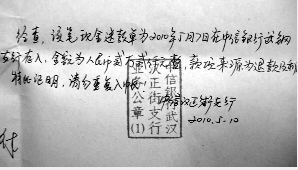 经查，该笔现金退款单为2010年5月7日在中信银行武钢
支行存入，金额为人民币贰万贰仟元整，款项来源为退款
特此证明，请勿重复入账
中信汉正街支行
2010.5.10
中信银行武汉
汉正街支行
业务公章
(1)